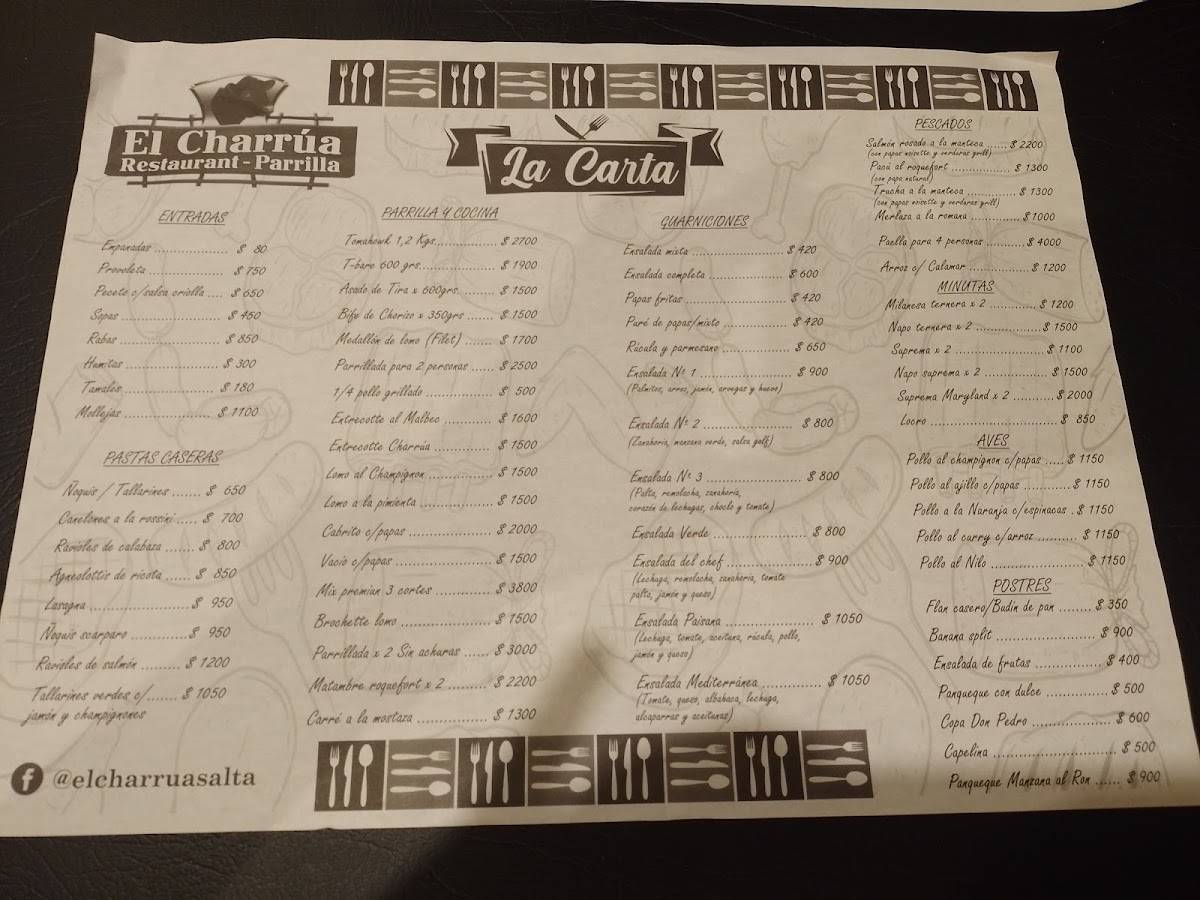 El Charrúa
Restaurant - Parrilla
La Carta
ENTRADAS
Empanadas ........ $ 80
Provoleta ........ $ 750
Peceto c/salsa criolla .... $ 650
Sopas ........ $ 450
Rabas ........ $ 850
Humitas ........ $ 300
Tamales ........ $ 180
Mollejas ........ $ 1100
PASTAS CASERAS
Ñoquis / Tallarines ....... $ 650
Canelones a la rossini ..... $ 700
Ravioles de calabaza ....... $ 800
Agneolottis de ricota ...... $ 850
Lasagna ........ $ 950
Ñoquis scarparo ........ $ 950
Ravioles de salmón ......... $ 1200
Tallarines verdes c/....... $ 1050
jamón y champignones
@elcharruasalta
PARRILLA Y COCINA
Tomahowk 1,2 Kgs............. $ 2700
T-bare 600 grs................ $ 1900
Asado de Tira x 600grs........ $ 1500
Bife de Chorizo x 350grs....... $ 1500
Medallón de lomo (Filet) ....... $ 1700
Parrillada para 2 personas ...... $ 2500
1/4 pollo grillado ........ $ 500
Entrecotte al Malbec ........ $ 1600
Entrecotte Charrúa ........ $ 1500
Lomo al Champignon ........ $ 1500
Lomo a la pimienta ........ $ 1500
Cabrito c/papas ........ $ 2000
Vacio c/papas ........ $ 1500
Mix premiun 3 cortes ........ $ 3800
Brochette lomo ........ $ 1500
Parrillada x 2 Sin achuras ...... $ 3000
Matambre roquefort x 2 ......... $ 2200
Carré a la mostaza ........ $ 1300
GUARNICIONES
Ensalada mixta ........ $ 420
Ensalada completa ........ $ 600
Papas fritas ........ $ 420
Puré de papas/mixto ........ $ 420
Rúcula y parmesano ........ $ 650
Ensalada Nº 1 ........ $ 900
(Palmitos, arroz, jamón, arvegas y huevo)
Ensalada Nº 2 ........ $ 800
(Zanahoria, manzana verde, salsa golf)
Ensalada Nº 3 ........ $ 800
(Palta, remolacha, zanahoria,
corazón de lechugas, choclo y tomate)
Ensalada Verde ........ $ 800
Ensalada del chef ........ $ 900
(Lechuga, remolacha, zanahoria, tomate
palta, jamón y queso)
Ensalada Paisana ........ $ 1050
(Lechuga, tomate, aceituna, rúcula, pollo,
jamón y queso)
Ensalada Mediterránea ........ $ 1050
(Tomate, queso, albahaca, lechuga,
alcaparras y aceitunas)
PESCADOS
Salmón rosado a la manteca ...... $ 2200
(con papas noisette y verduras grill)
Pacú al roquefort ........ $ 1300
(con papa natural)
Trucha a la manteca ........ $ 1300
(con papas noisette y verduras grill)
Merluza a la romana ........ $ 1000
Paella para 4 personas ........ $ 4000
Arroz c/ Calamar ........ $ 1200
MINUTAS
Milanesa ternera x 2 ........ $ 1200
Napo ternera x 2 ........ $ 1500
Suprema x 2 ........ $ 1100
Napo suprema x 2 ........ $ 1500
Suprema Maryland x 2 ........ $ 2000
Locro ........ $ 850
AVES
Pollo al champignon c/papas ..... $ 1150
Pollo al ajillo c/papas ........ $ 1150
Pollo a la Naranja c/espinacas . $ 1150
Pollo al curry c/arroz .......... $ 1150
Pollo al Nilo ........ $ 1150
POSTRES
Flan casero/Budin de pan ........ $ 350
Banana split ........ $ 900
Ensalada de frutas ........ $ 400
Panqueque con dulce ........ $ 500
Copa Don Pedro ........ $ 600
Capelina ........ $ 500
Panqueque Manzana al Ron ...... $ 900